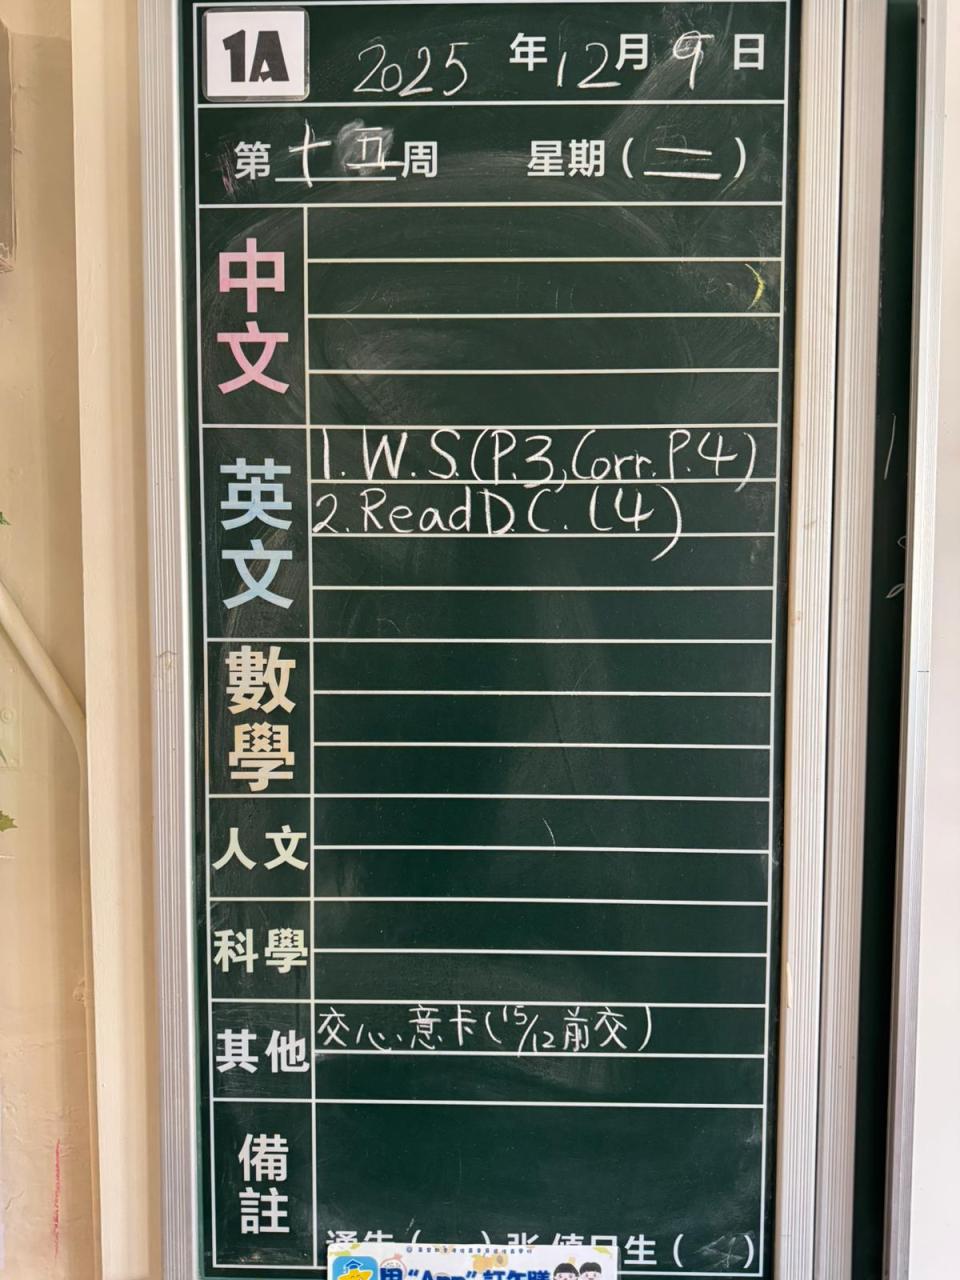 1A 2025 年 12 月 9 日
第 十五 周 星期 ( 二 )
中文
英文
1. W.S. (P.3, Corr. P.4)
2. Read D.C. (4)
數學
人文
科學
其他
交心意卡 (15/12前交)
備註
通告 ( ) 張 值日生 ( )
用 “App” 訂午膳